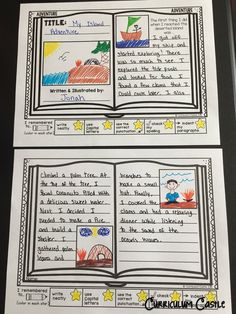 ADVENTURE
ADVENTURE
TITLE: My Island
Adventure
Written & Illustrated by:
Jonah
The first thing I did
when I reached the
deserted island
I got off
my ship and
started exploring! There
was so much to see. I
explored the tide pools
and looked for food. I
found a few clams that I
could cook later. I also
I remembered to...
(color in each star)
write
neatly
use
capital
letters
use the
correct
punctuation
check
my
spelling
indent my
paragraphs
climbed a palm tree. At
the top of the tree, I
found coconuts filled with
a delicious sweet water.
Next I decided I
needed to make a fire
and build a
shelter. I
gathered palm
leaves and
branches to make a small
hut. Finally,
I cooked the
clams and had a relaxing
dinner while listening
to the sound of the
ocean's waves.
I remembered to...
(color in each star)
write
neatly
use
capital
letters
use the
correct
punctuation
check
my
indent my
Curriculum Castle